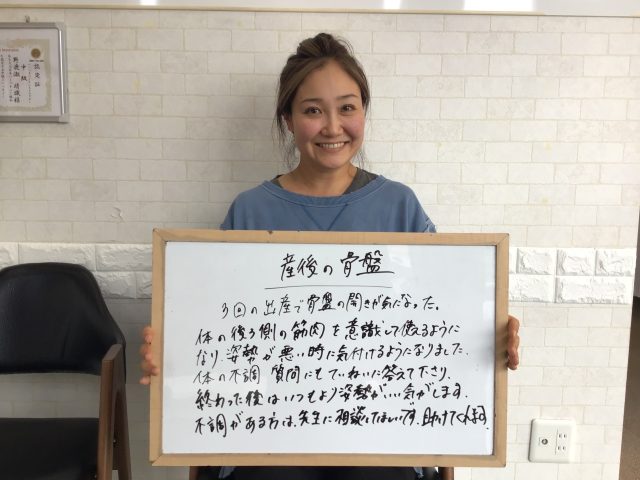 認定証
中級
産後の骨盤
3回の出産で骨盤の開きが気になった。
体の後ろ側の筋肉を意識して使えるように
なり姿勢が悪い時に気付けるようになりました.
体の不調 質問にもていねいに答えて下さり、
終わった後はいつもより姿勢がいい気がします.
不調がある方は、先生に相談してほしいです。助けてくれます。